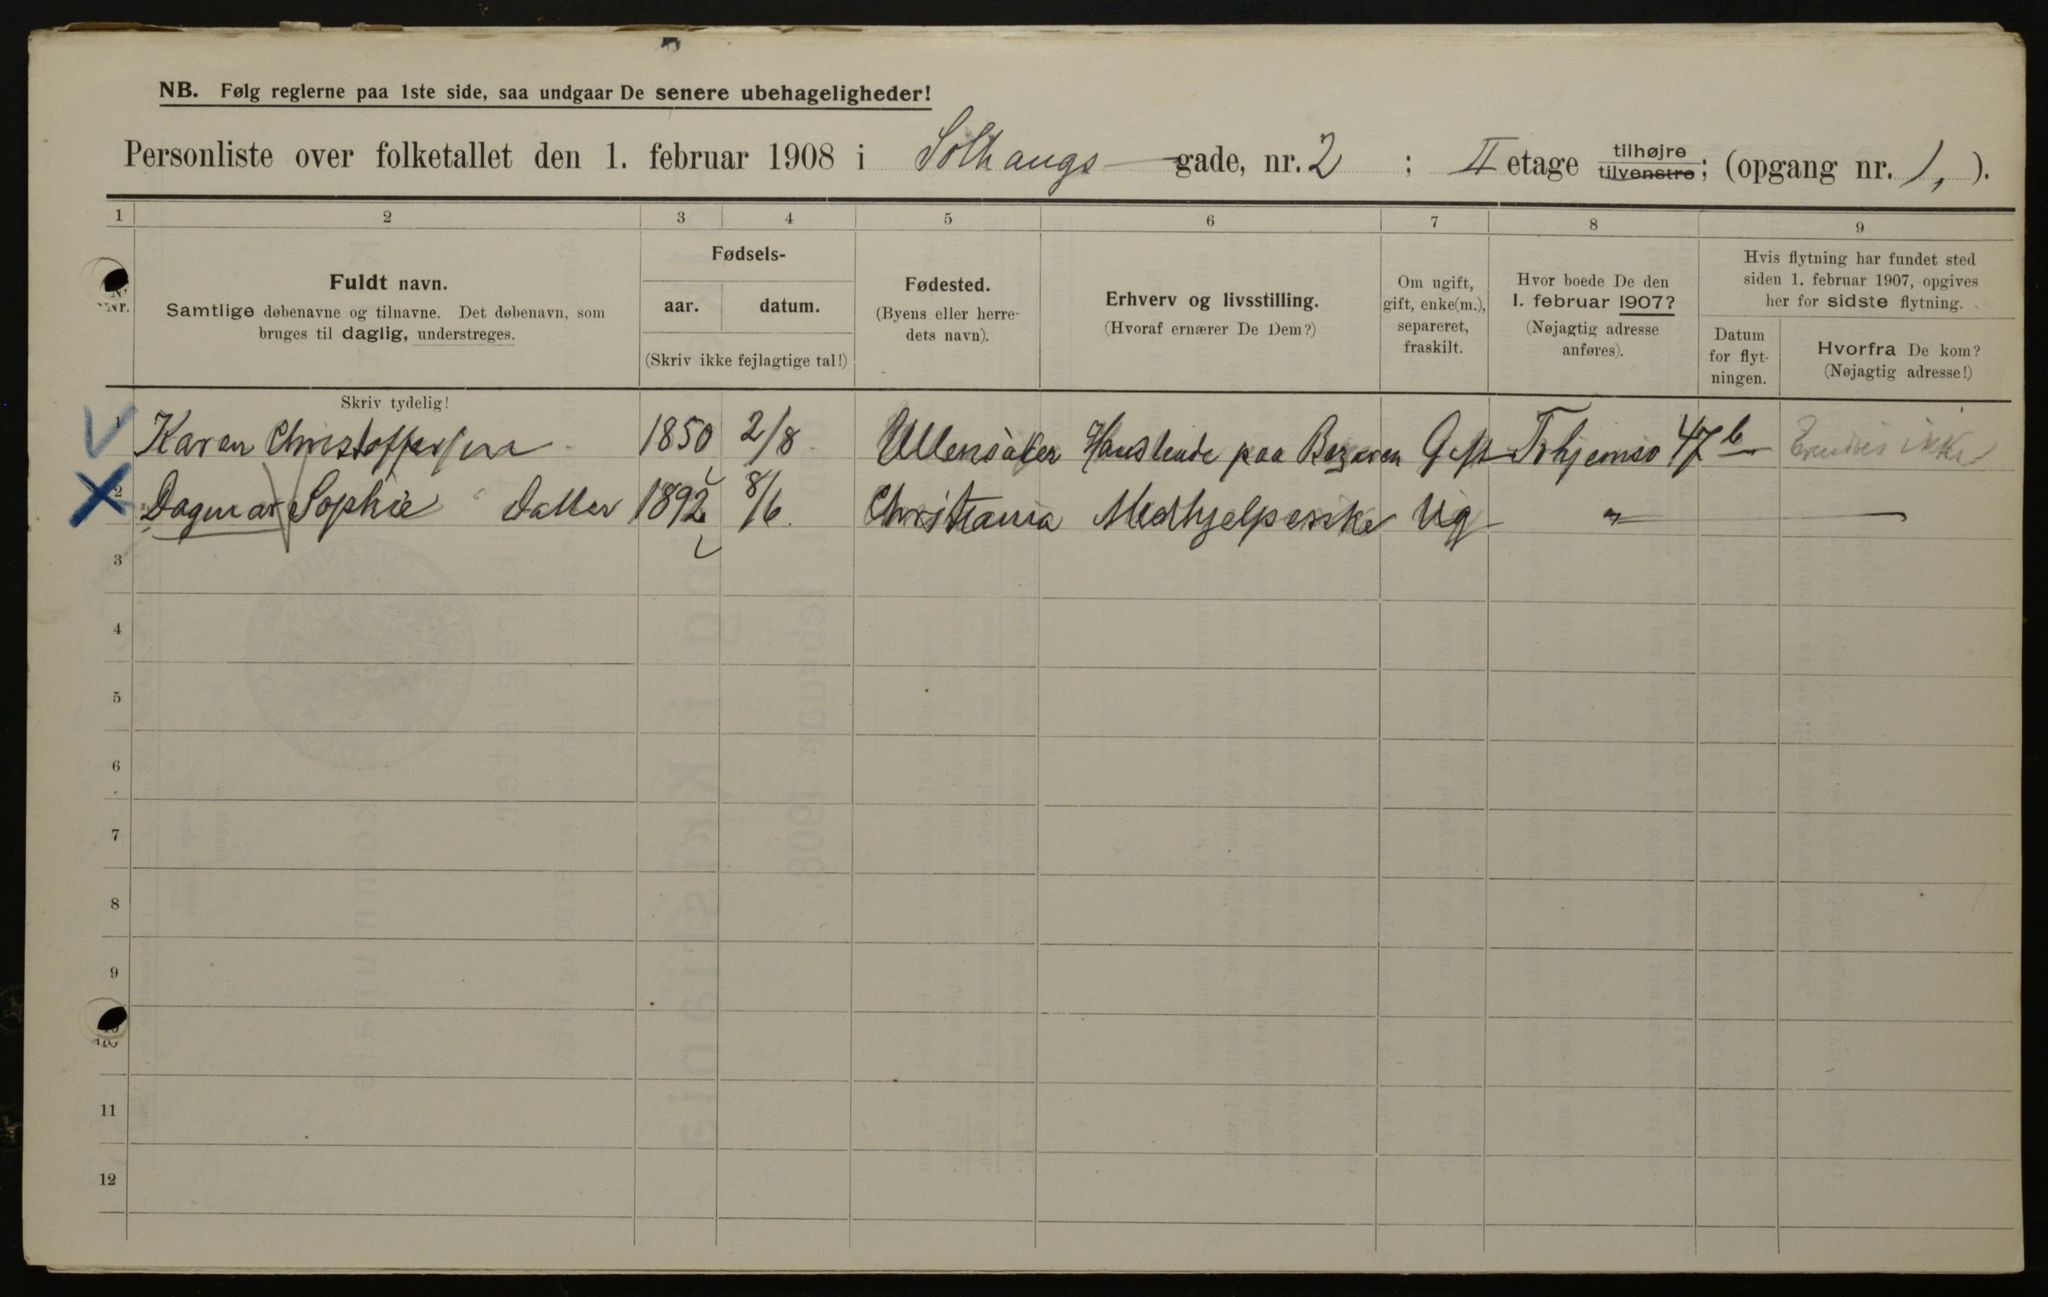 NB. Følg reglerne paa 1ste side, saa undgaar De senere ubehageligheder!
Personliste over folketallet den 1. februar 1908 i Solhaugs gade, nr. 2 ; II etage tilhøjre tilvenstre; (opgang nr. 1, ).
1 2 3 4 5 6 7 8 9
Nr.
Fuldt navn.
Samtlige døbenavne og tilnavne. Det døbenavn, som
bruges til daglig, understreges.
Skriv tydelig!
Fødsels-
aar. datum.
(Skriv ikke fejlagtige tal!)
Fødested.
(Byens eller herre-
dets navn).
Erhverv og livsstilling.
(Hvoraf ernærer De Dem?)
Om ugift,
gift, enke(m.),
separeret,
fraskilt.
Hvor boede De den
1. februar 1907?
(Nøjagtig adresse
anføres).
Hvis flytning har fundet sted
siden 1. februar 1907, opgives
her for sidste flytning.
Datum
for flyt-
ningen.
Hvorfra De kom?
(Nøjagtig adresse!)
1 Karen Christoffersen 1850 2/8 Ullensaker paa Bazaren Gift 47 b ikke
2 Dagmar Sophie Datter 1892 8/6 Christiania Medhjelperske Ug " —
3
4
5
6
7
8
9
10
11
12